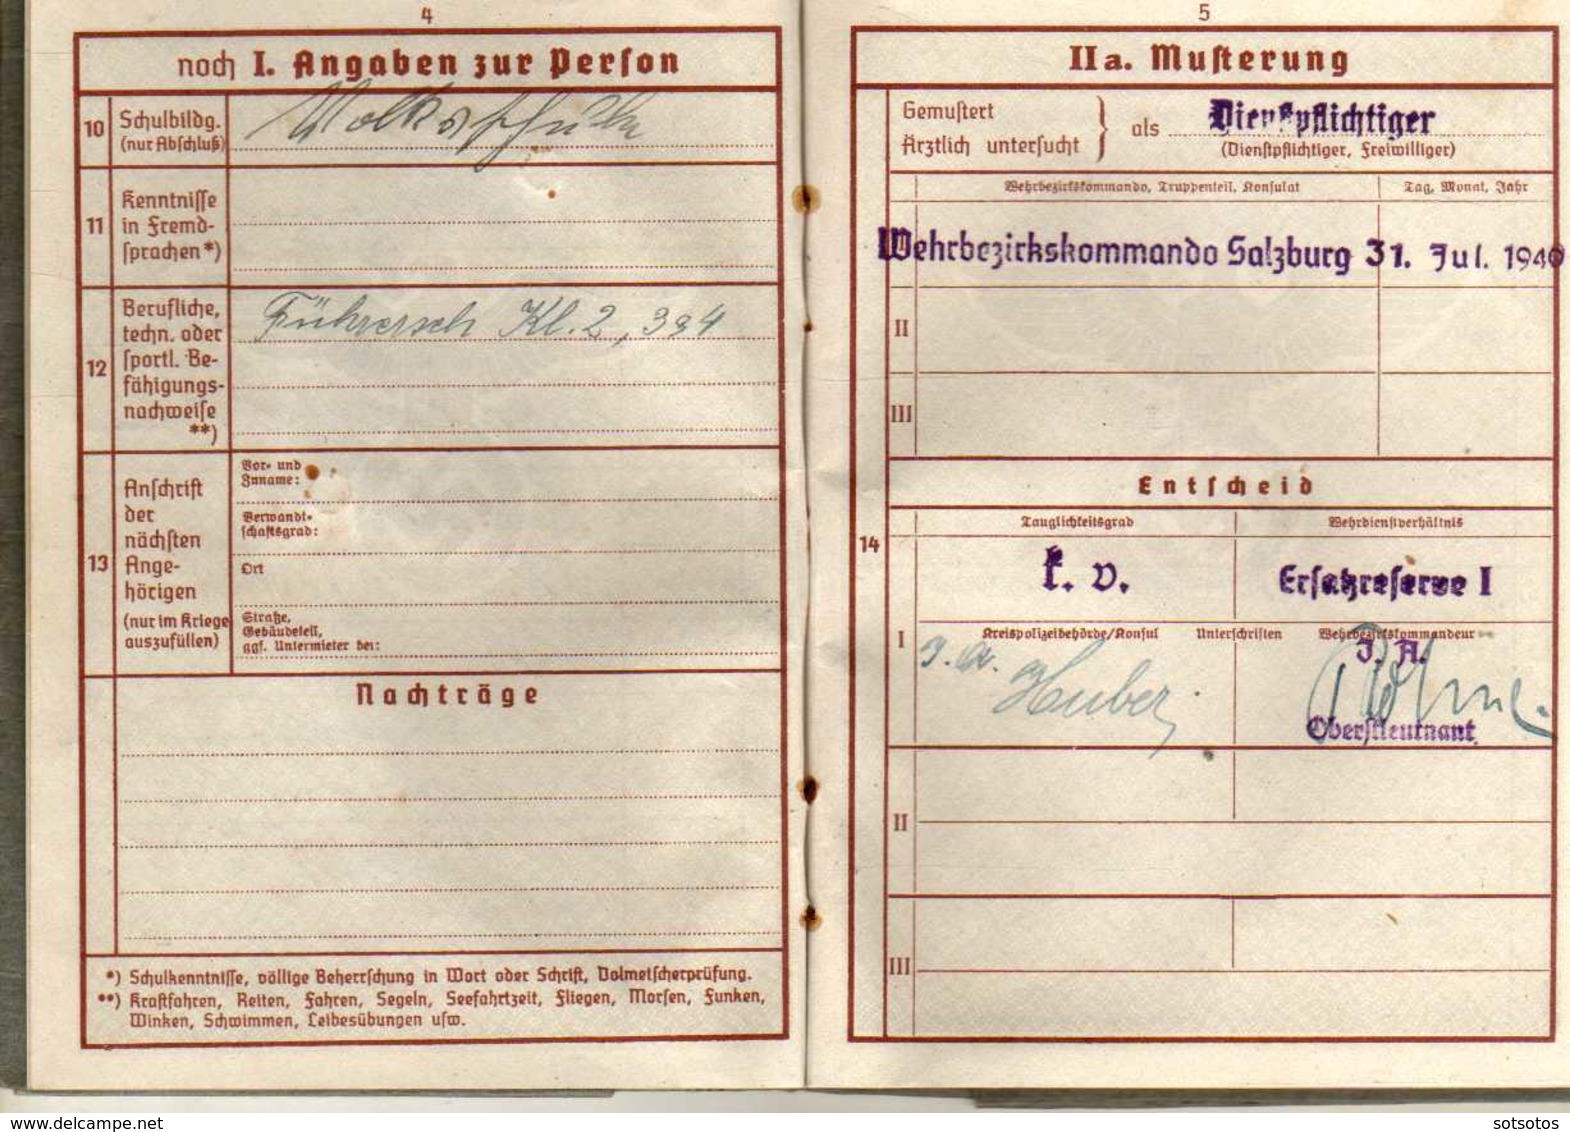 4
noch I. Angaben zur Person
10 Schulbildg.
(nur Abschluß)
Volksschule
11 Kenntnisse
in Fremd-
sprachen*)
12 Berufliche,
techn. oder
sportl. Be-
fähigungs-
nachweise
**)
Führersch Kl. 2, 3 4
13 Anschrift
der
nächsten
Ange-
hörigen
(nur im Kriege
auszufüllen)
Vor- und
Zuname:
Verwandt-
schaftsgrad:
Ort
Straße,
Gebäudeteil,
ggf. Untermieter bei:
Nachträge
*) Schulkenntnisse, völlige Beherrschung in Wort oder Schrift, Dolmetscherprüfung.
**) Kraftfahren, Reiten, Fahren, Segeln, Seefahrtzeit, Fliegen, Morsen, Funken,
Winken, Schwimmen, Leibesübungen usw.
5
IIa. Musterung
Gemustert
Ärztlich untersucht
als Dienstpflichtiger
(Dienstpflichtiger, Freiwilliger)
Wehrbezirkskommando, Truppenteil, Konsulat Tag, Monat, Jahr
Wehrbezirkskommando Salzburg 31. Jul. 1940
II
III
Entscheid
14
Tauglichkeitsgrad Wehrdienstverhältnis
k. v. Ersatzreserve I
I
Kreispolizeibehörde/Konsul Unterschriften Wehrbezirkskommandeur
J. A.
J. A. Huber
Oberstleutnant
II
III
delcampe.net
sotsotos